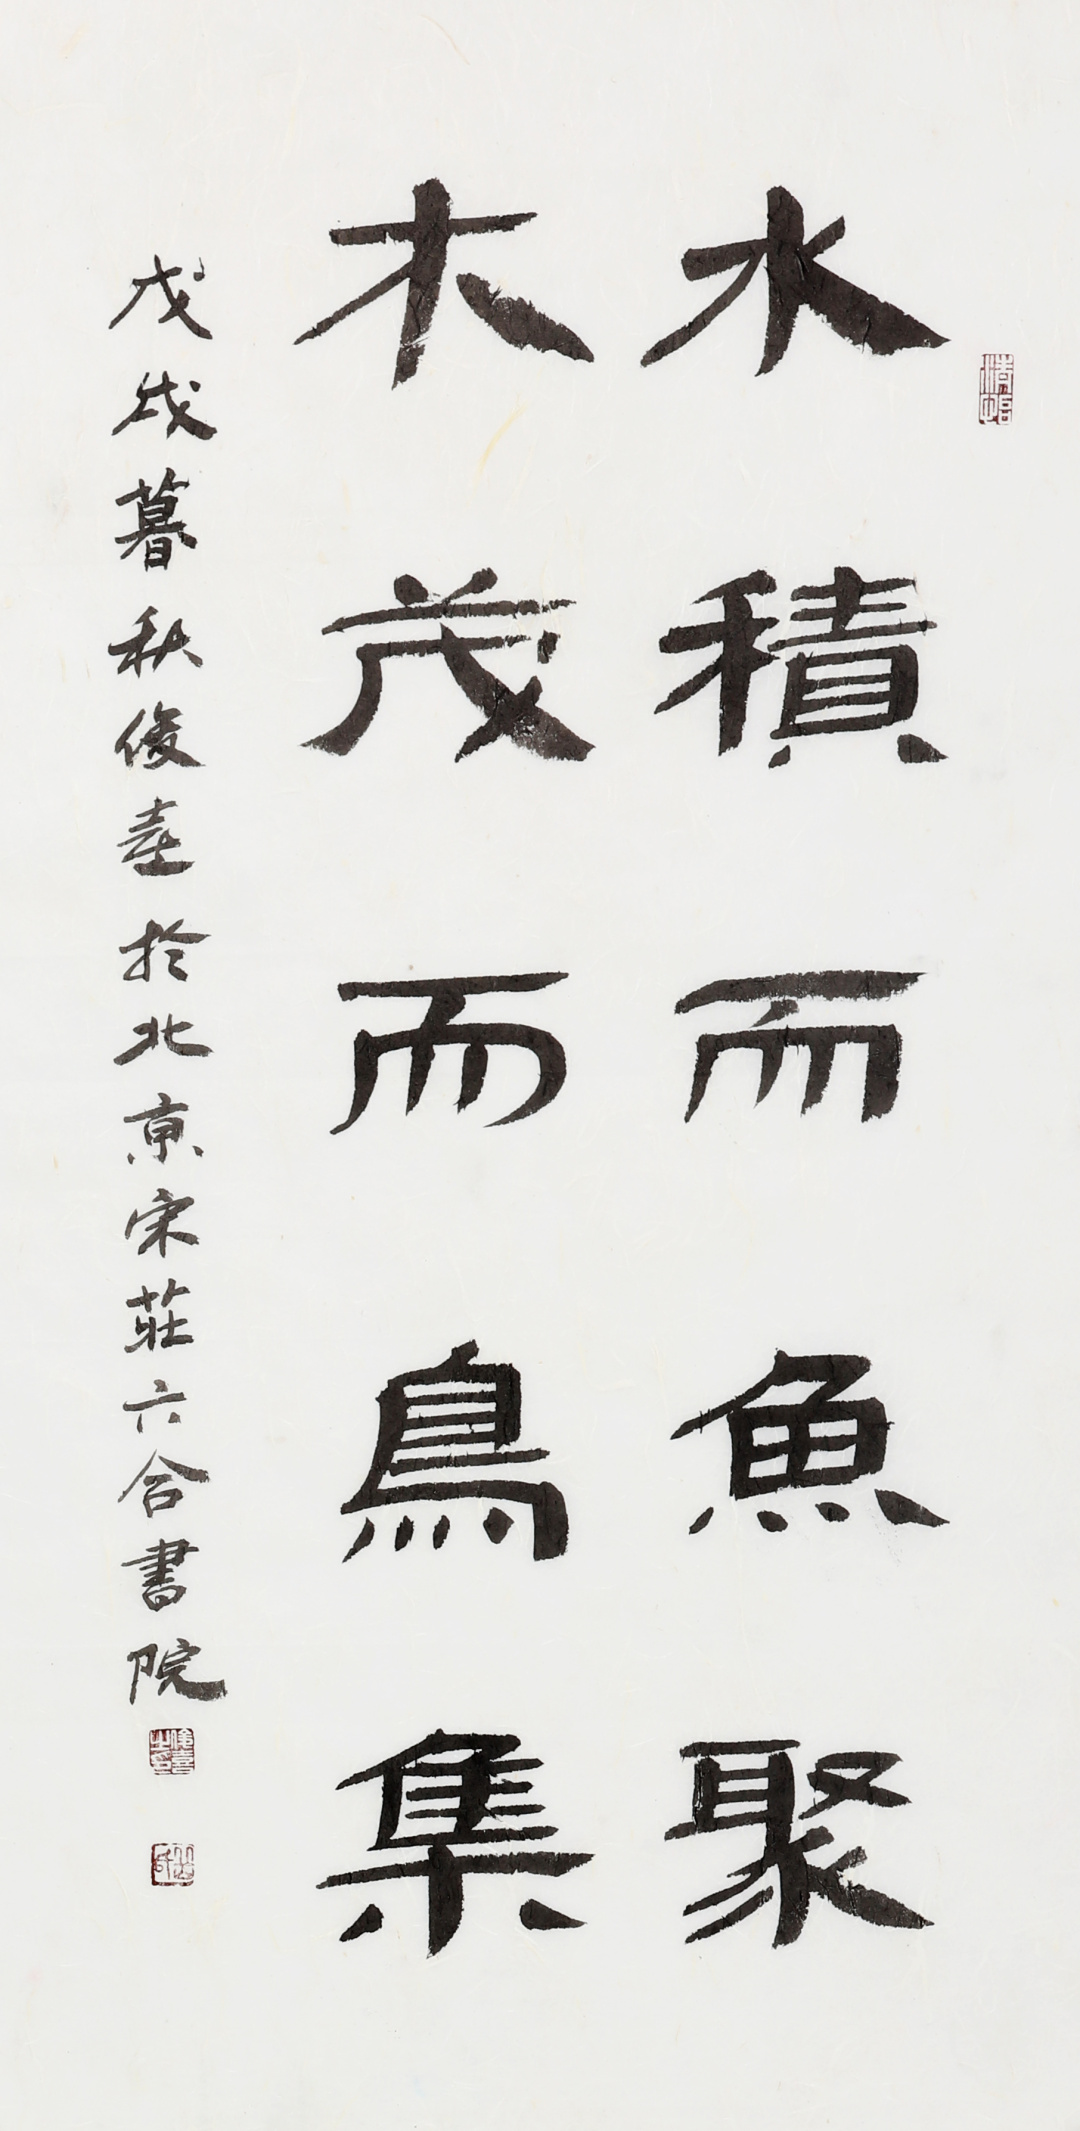 水積而魚聚
木茂而鳥集
戊戌暮秋俊臺於北京宋莊六合書院